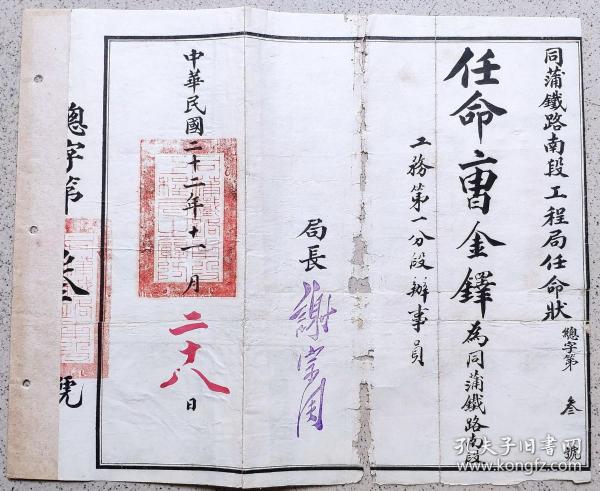 同蒲鐵路南段工程局任命狀
總字第 叁 號
任命曹金鐸為同蒲鐵路南段
工務第一分段辦事員
局長 謝宗周
中華民國二十二年十一月二十八日
總字第 叁 號
孔夫子旧书网
www.kongfz.com